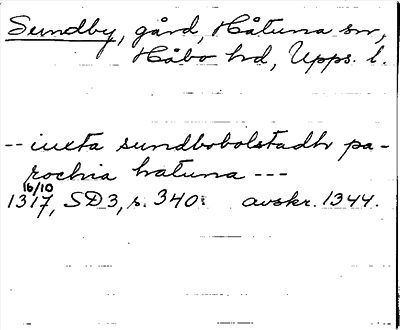 Sundby, gård, Håtuna sn,
Håbo hd, Upps. l.
-- iuxta sundbobolstadh pa-
rochia hatuna ---
16/10
1317, SD3, s. 340. avskr. 1344.